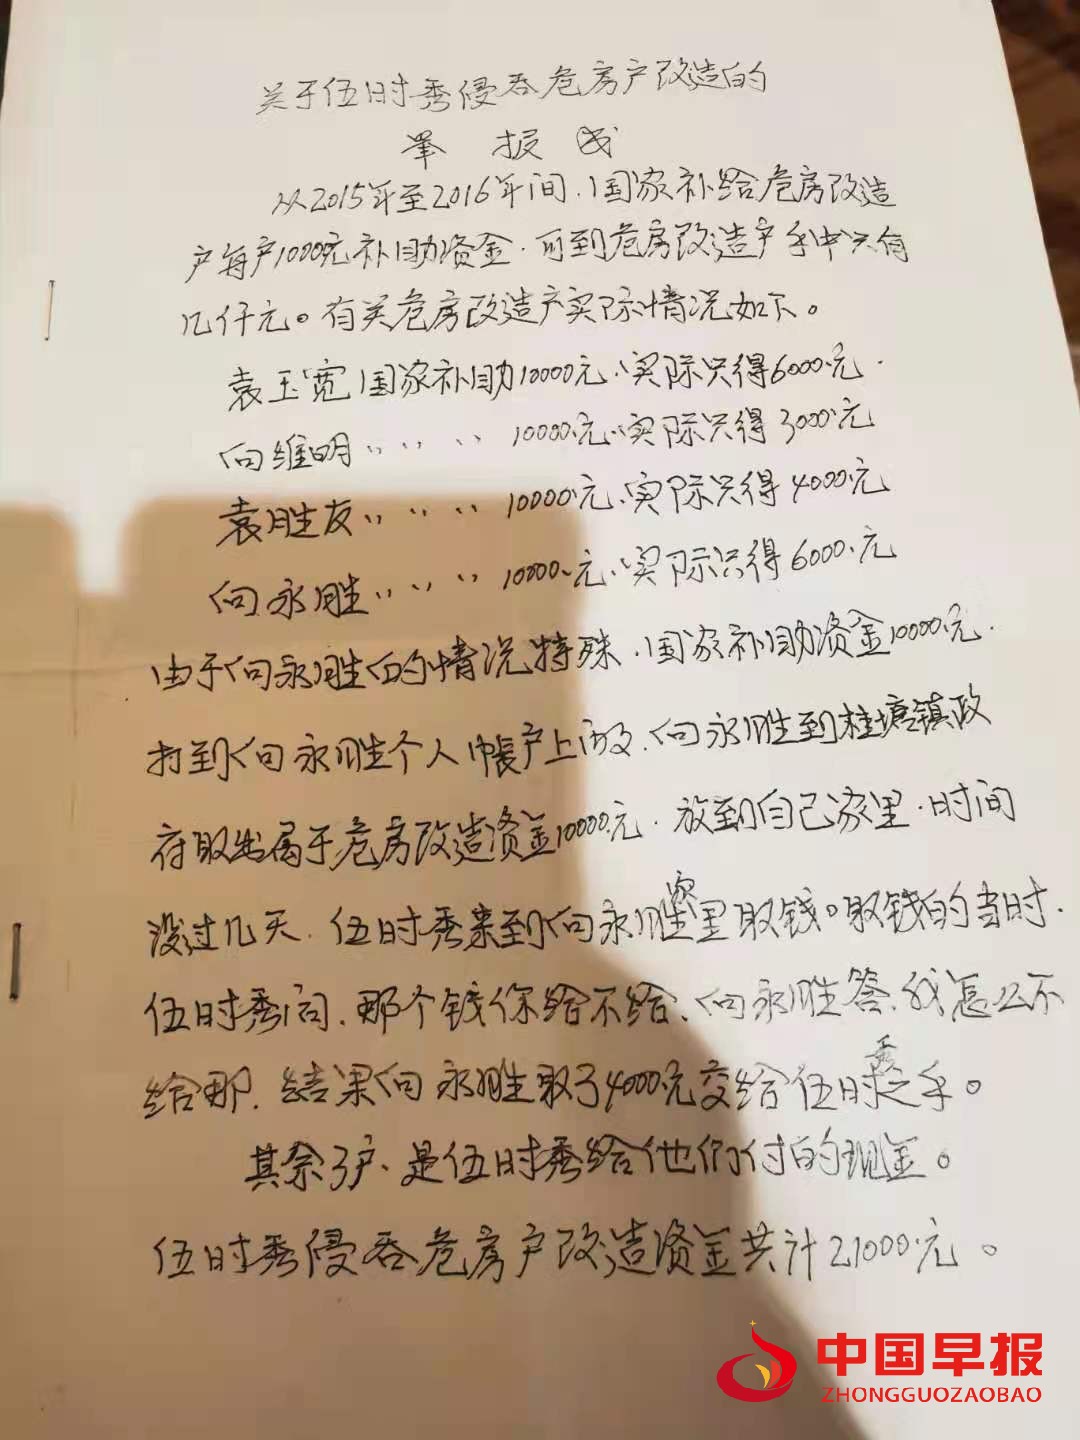 关于伍时秀侵吞危房户改造的
举报
从2015年至2016年间.国家补给危房改造
户每户10000元补助资金.可到危房改造户手中只有
几仟元。有关危房改造户实际情况如下。
袁玉宽国家补助10000元.实际只得6000元.
向维明〃〃〃10000元.实际只得3000元
袁胜友〃〃〃10000元.实际只得4000元
向永胜〃〃〃10000元.实际只得6000元
由于向永胜的情况特殊.国家补助资金10000元.
打到向永胜个人帐户上.向永胜到桂塘镇政
府取出属于危房改造资金10000元.放到自己家里.时间
没过几天.伍时秀来到向永胜家里取钱。取钱的当时.
伍时秀问.那个钱你给不给.向永胜答.我怎么不
给那.结果向永胜取了4000元交给伍时秀之手。
其余3户.是伍时秀给他们付的现金。
伍时秀侵吞危房户改造资金共计21000元。
中国早报
ZHONGGUOZAOBAO